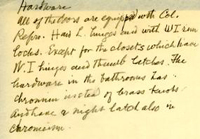 Hardware
All of the doors are equipped with Col.
Repro. H & L hinges and with W I rim
locks. Except for the closets which have
W. I hinges and thumb latches. The
hardware in the bathrooms has
chromium instead of brass knobs
and have a night latch also in
chromium